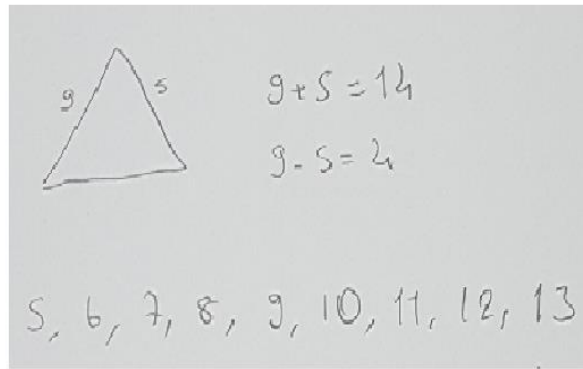 9 5
9 + 5 = 14
9 - 5 = 4
5, 6, 7, 8, 9, 10, 11, 12, 13